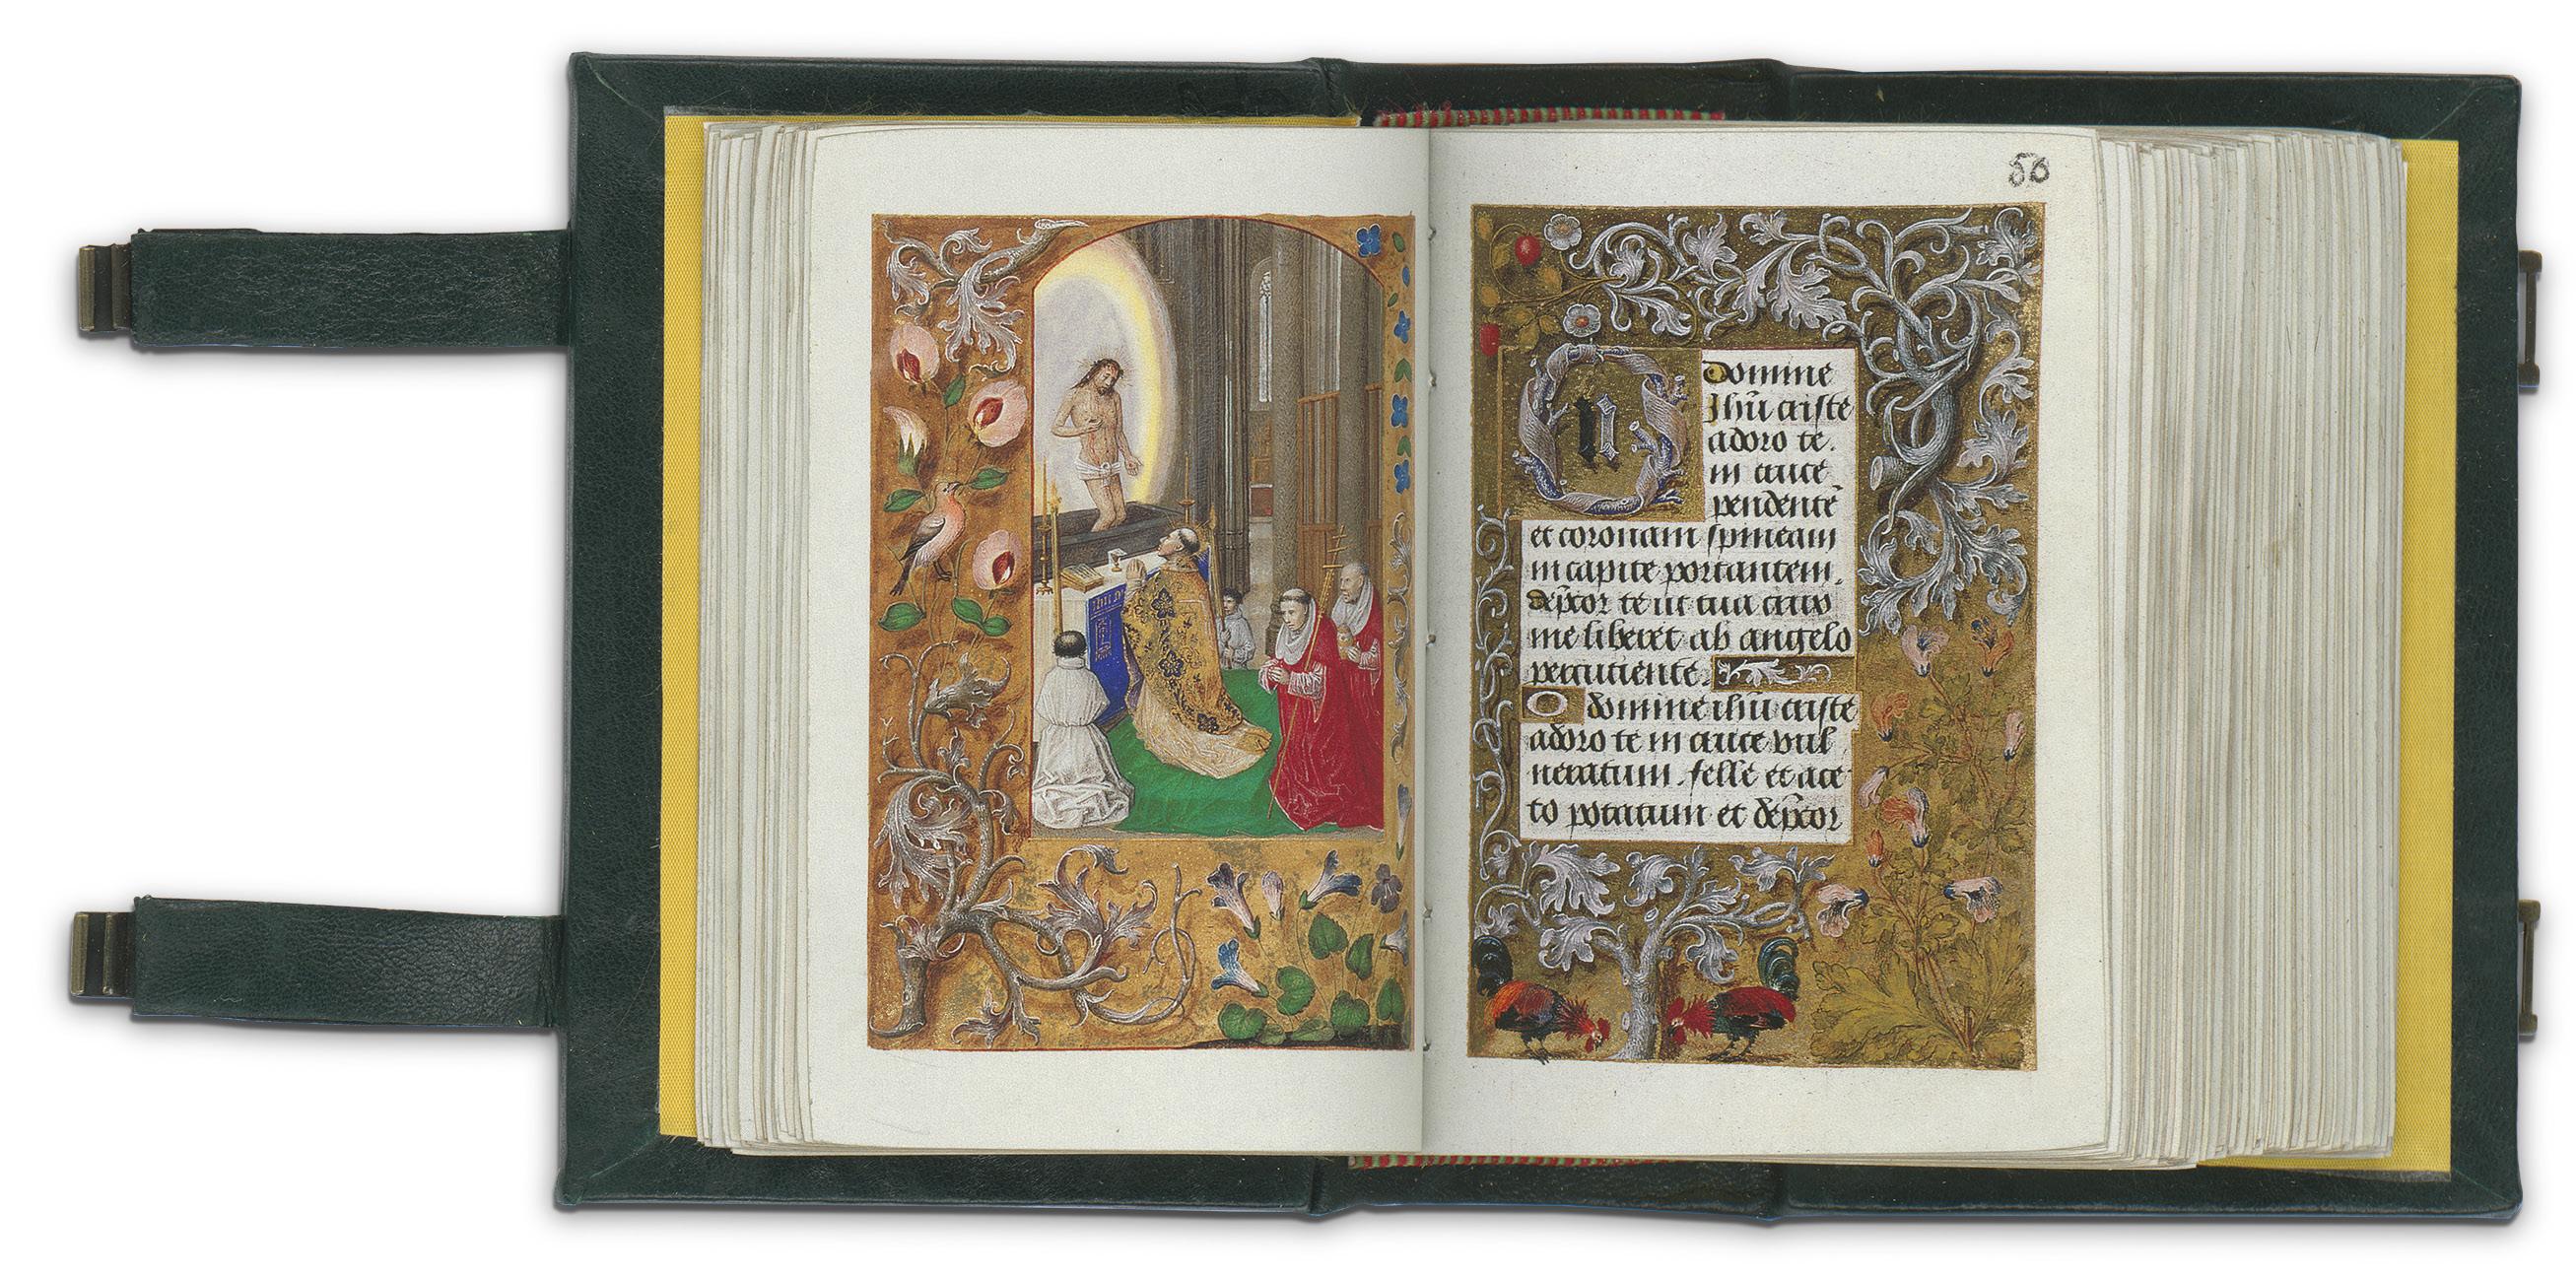 56
O domine
Jhũ criste
adoro te.
in cruce
pendentẽ
et coronam spineam
in capite portantem.
dep̃cor te ut tua crux
me liberet ab angelo
percutiente.
O domine ihũ criste
adoro te in cruce vul
neratum. felle et ace
to potatum et dep̃cor